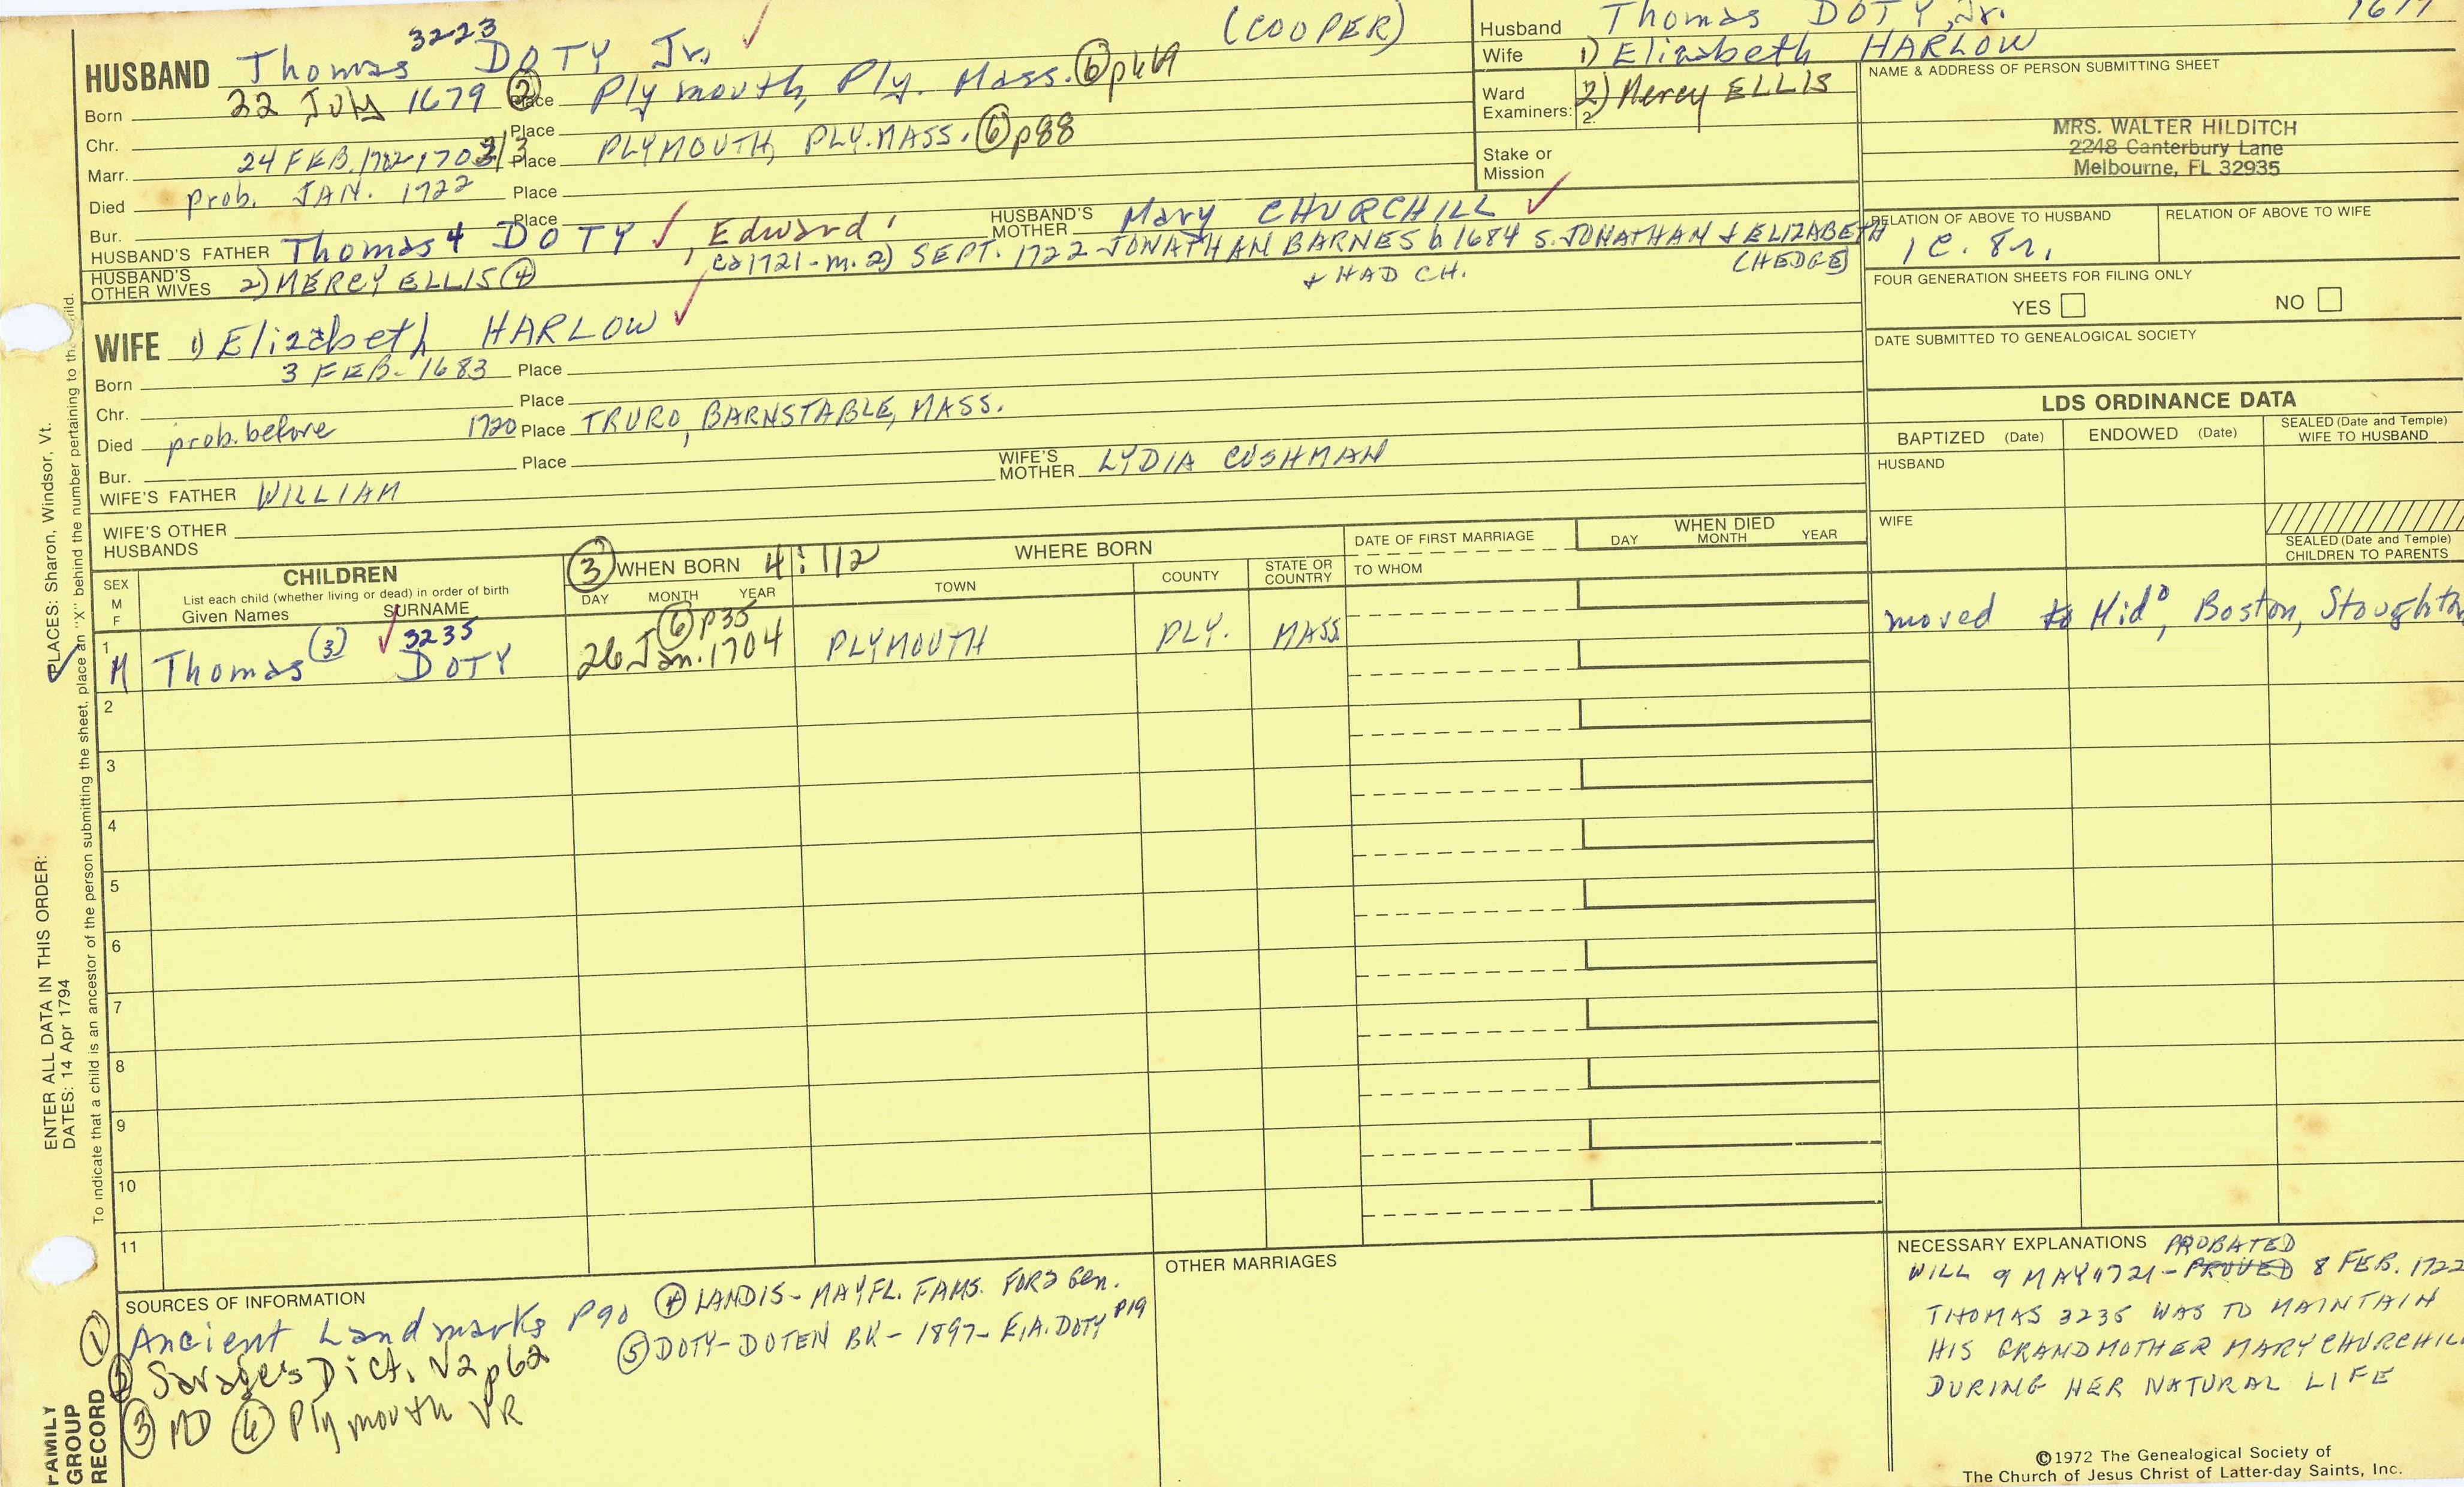 (COOPER)
HUSBAND Thomas 3223 DOTY Jr.
Born 22 July 1679 ② Place Plymouth, Ply. Mass.
Chr. Place
Marr. 24 FEB. 1702-1702/3 Place PLYMOUTH, PLY. MASS. ⑥ p88
Died prob. JAN. 1722 Place
Bur. Place
HUSBAND'S FATHER Thomas 4 DOTY, Edward' HUSBAND'S MOTHER Mary CHURCHILL
HUSBAND'S OTHER WIVES 2) MERCY ELLIS ④ ca 1721 - m. 2) SEPT. 1722 - JONATHAN BARNES b 1684 S. JONATHAN & ELIZABETH (HEDGE)
& HAD CH.
WIFE 1) Elizabeth HARLOW
Born 3 FEB. 1683 Place
Chr. Place
Died prob. before 1720 Place TRURO, BARNSTABLE, MASS.
Bur. Place
WIFE'S FATHER WILLIAM WIFE'S MOTHER LYDIA CUSHMAN
WIFE'S OTHER HUSBANDS
Husband Thomas DOTY, Jr.
Wife 1) Elizabeth HARLOW
Ward 2) Mercy ELLIS
Examiners: 2.
Stake or Mission
NAME & ADDRESS OF PERSON SUBMITTING SHEET
MRS. WALTER HILDITCH
2248 Canterbury Lane
Melbourne, FL 32935
RELATION OF ABOVE TO HUSBAND RELATION OF ABOVE TO WIFE
1 C. 8r.
FOUR GENERATION SHEETS FOR FILING ONLY
YES NO
DATE SUBMITTED TO GENEALOGICAL SOCIETY
LDS ORDINANCE DATA
BAPTIZED (Date) ENDOWED (Date) SEALED (Date and Temple) WIFE TO HUSBAND
HUSBAND
WIFE
SEALED (Date and Temple) CHILDREN TO PARENTS
SEX M F
CHILDREN
List each child (whether living or dead) in order of birth
Given Names SURNAME
③ WHEN BORN 4:112
DAY MONTH YEAR
WHERE BORN
TOWN COUNTY STATE OR COUNTRY
DATE OF FIRST MARRIAGE
TO WHOM
WHEN DIED
DAY MONTH YEAR
1 M Thomas (3) 3235 DOTY 26 Jan. 1704 ⑥ p35 PLYMOUTH PLY. MASS moved to Mid°, Boston,
2
3
4
5
6
7
8
9
10
11
SOURCES OF INFORMATION
① Ancient Landmarks P90 ④ LANDIS - MAYFL. FAMS. FOR 2 Gen.
② Savage's Dict. V2 p62 ⑤ DOTY-DOTEN BK - 1897 - E.A. DOTY P19
③ MD ⑥ Plymouth VR
OTHER MARRIAGES
NECESSARY EXPLANATIONS PROBATED
WILL 9 MAY 1721 - PROVED 8 FEB. 1722
THOMAS 3235 WAS TO MAINTAIN
HIS GRANDMOTHER MARY CHURCHILL
DURING HER NATURAL LIFE
©1972 The Genealogical Society of
The Church of Jesus Christ of Latter-day Saints, Inc.
ENTER ALL DATA IN THIS ORDER:
DATES: 14 Apr 1794
PLACES: Sharon, Windsor, Vt.
To indicate that a child is an ancestor of the person submitting the sheet, place an "X" behind the number pertaining to
FAMILY
GROUP
RECORD